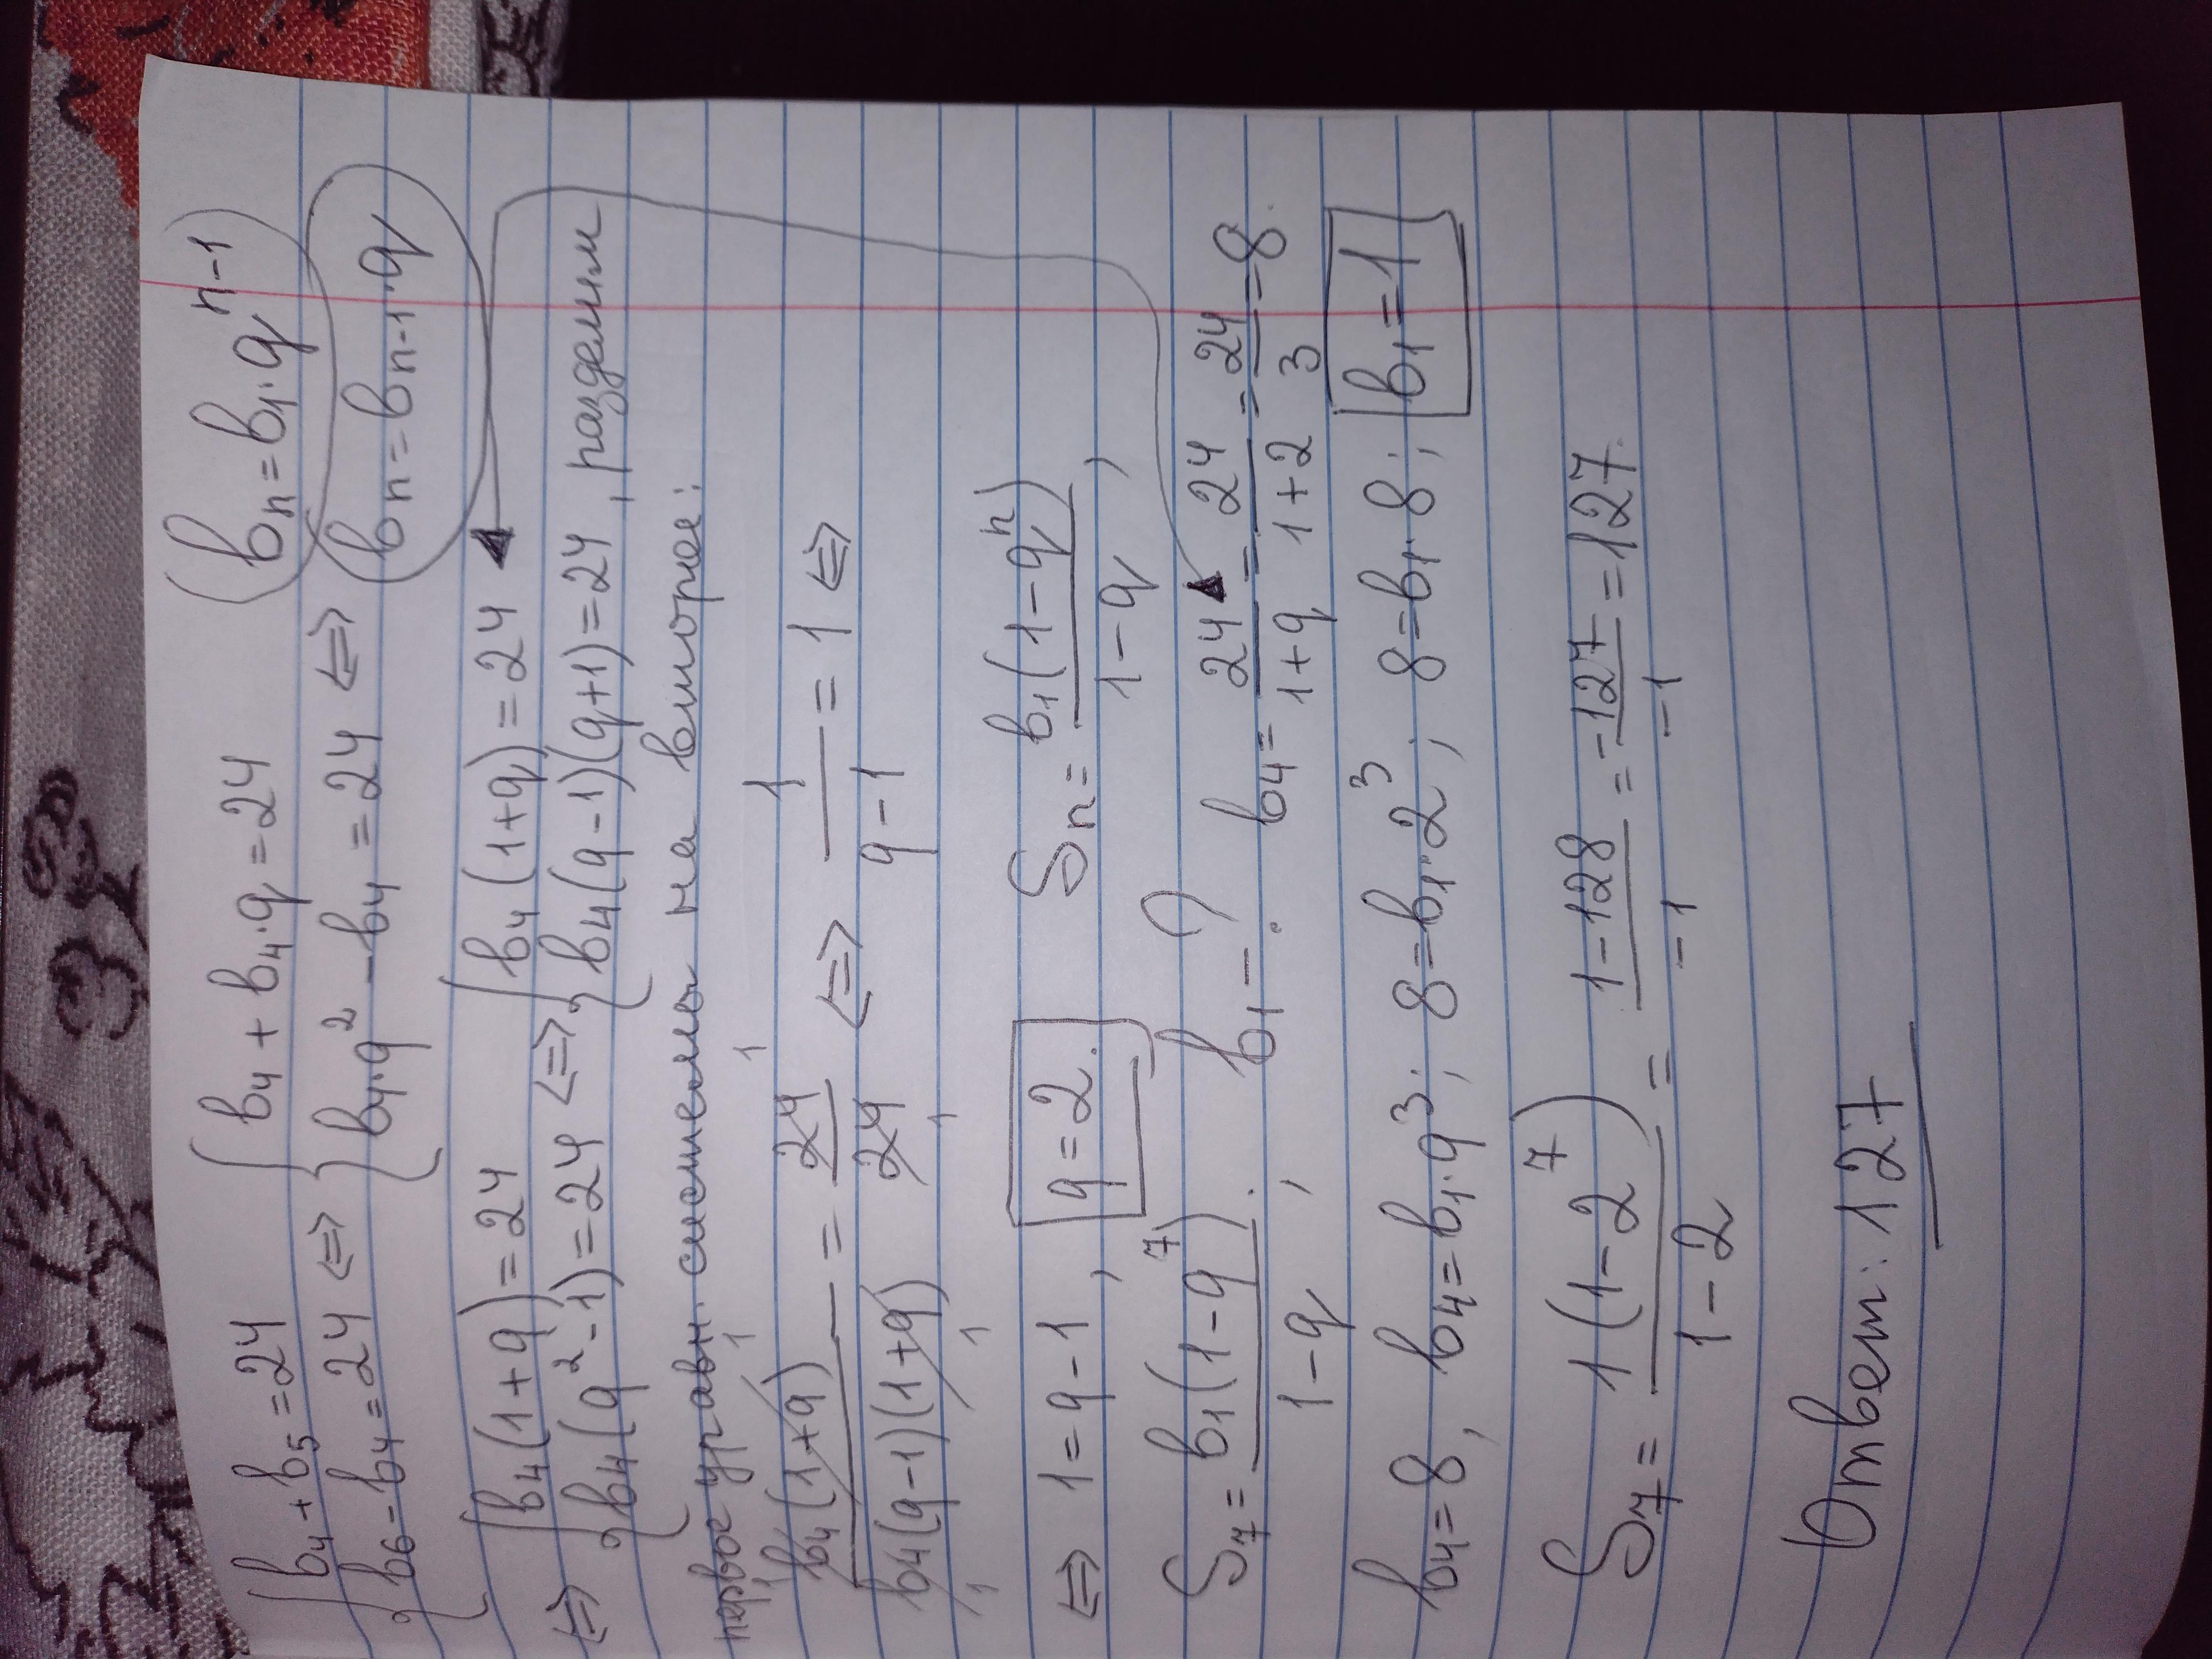 { b₄ + b₅ = 24 <=> { b₄ + b₄·q = 24 (bₙ = b₁·qⁿ⁻¹)
{ b₆ - b₄ = 24 <=> { b₄·q² - b₄ = 24 <=> (bₙ = bₙ₋₁·q)
{ b₄(1+q) = 24 { b₄(1+q) = 24
<=> { b₄(q²-1) = 24 <=> { b₄(q-1)(q+1) = 24, разделим
первое уравн. системы на второе:
b₄(1+q) / b₄(q-1)(1+q) = 24/24 <=> 1/(q-1) = 1 <=>
<=> 1 = q-1, q = 2. Sₙ = b₁(1-qⁿ)/(1-q),
S₇ = b₁(1-q⁷)/(1-q), b₁ - ? b₄ = 24/(1+q) = 24/(1+2) = 24/3 = 8.
b₄ = 8, b₄ = b₁·q³; 8 = b₁·2³; 8 = b₁·8; b₁ = 1
S₇ = 1(1-2⁷)/(1-2) = (1-128)/-1 = -127/-1 = 127.
Ответ: 127